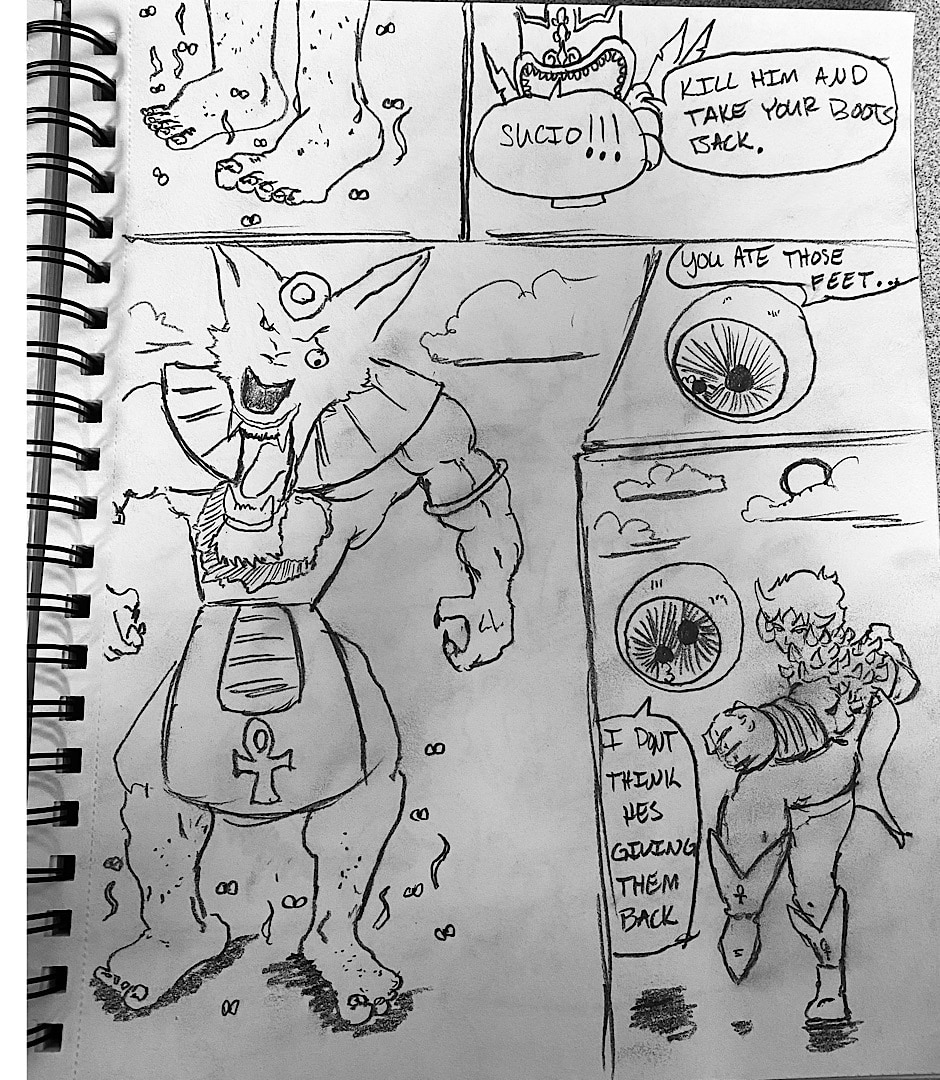 SUCIO!!!
KILL HIM AND
TAKE YOUR BOOTS
BACK.
YOU ATE THOSE
FEET...
I DONT
THINK
HES
GIVING
THEM
BACK